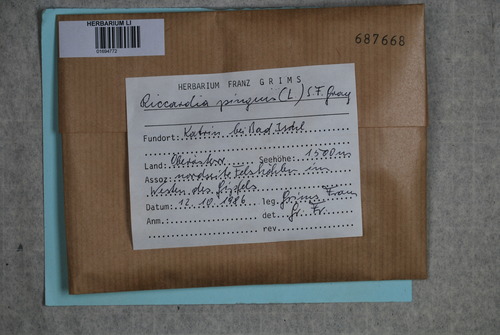 HERBARIUM LI
01694773
687668
HERBARIUM FRANZ GRIMS
Riccardia pinguis (L) S.F. Gray
Fundort: Katrin bei Bad Ischl
Land: Oberösterr. Seehöhe: 1500m
Assoz: nordseite Felshöhlen im
Westen des Gipfels
Datum: 12.10.1986 leg. Grims Franz
Anm.: det. Gr. Fr.
rev.